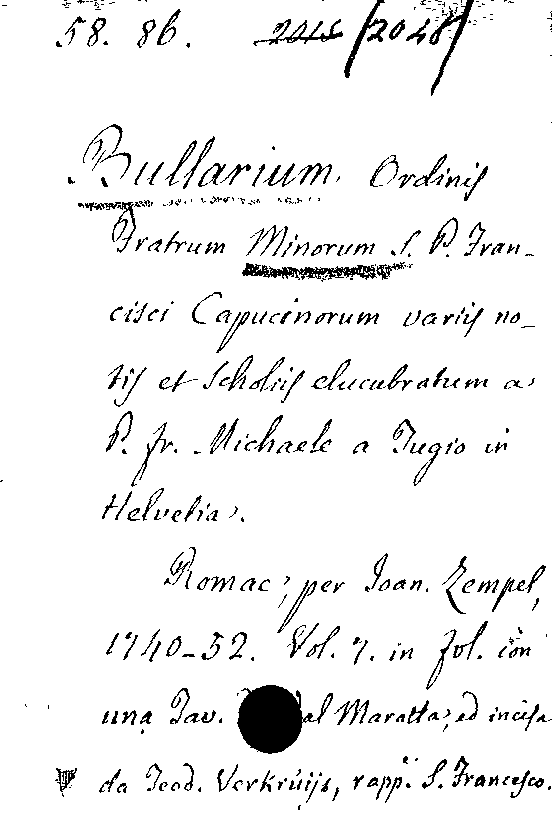 58. 86. 2015/2048
Bullarium. Ordinis
Fratrum Minorum S. P. Fran-
cisci Capucinorum variis no-
tis et Scholiis elucubratum a
P. fr. Michaele a Tugio in
Helvetia.
Romae, per Joan. Zempel,
1740-52. Vol. 7. in fol. con
una Tav. dal Maratta, ed incisa
da Teod. Verkruijs, rapp. S. Francesco.